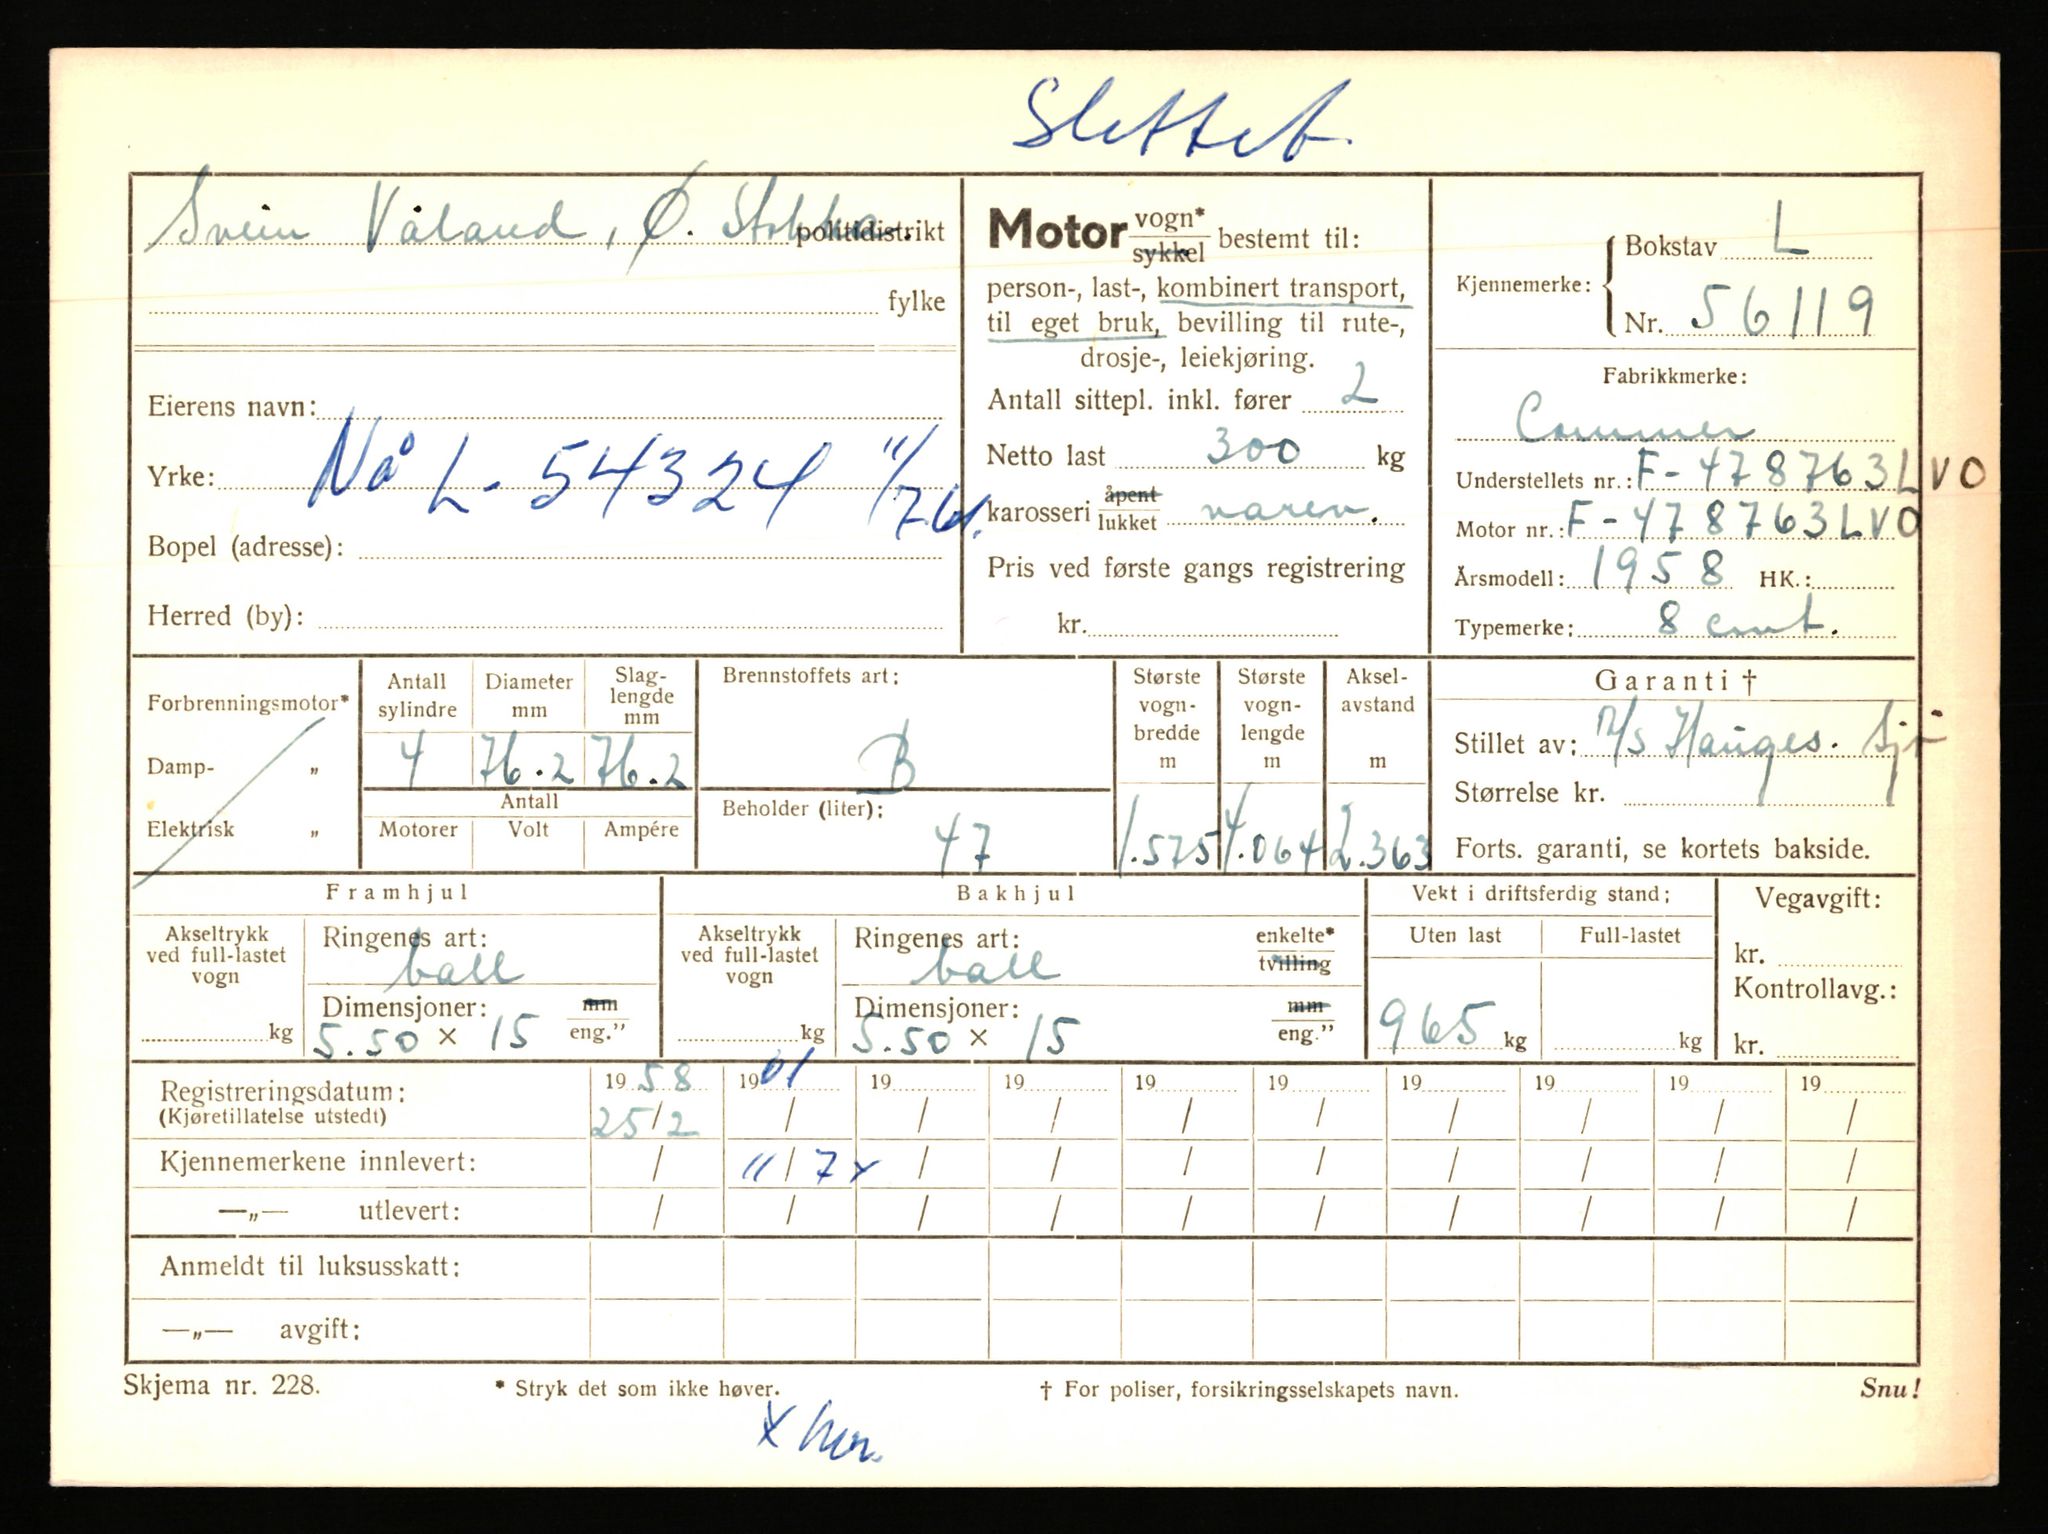 Slettet
Svein Våland, Ø. Stokka. politidistrikt
fylke
Eierens navn:
Yrke: Nå L- 54324 11/7 61.
Bopel (adresse):
Herred (by):
Motor vogn* sykkel bestemt til:
person-, last-, kombinert transport,
til eget bruk, bevilling til rute-,
drosje-, leiekjøring.
Antall sittepl. inkl. fører 2
Netto last 300 kg
karosseri åpent lukket varev.
Pris ved første gangs registrering
kr.
Kjennemerke: Bokstav L
Nr. 56119
Fabrikkmerke:
Commer
Understellets nr.: F-478763LVO
Motor nr.: F-478763LVO
Årsmodell: 1958 HK.:
Typemerke: 8 cwt.
Forbrenningsmotor*
Damp- „
Elektrisk „
Antall sylindre
Diameter mm
Slag-lengde mm
4 76.2 76.2
Antall
Motorer Volt Ampére
Brennstoffets art:
B
Beholder (liter):
47
Største vogn-bredde m
1.575
Største vogn-lengde m
4.064
Aksel-avstand m
2.363
Garanti †
Stillet av: Hauges. Sj
Størrelse kr.
Forts. garanti, se kortets bakside.
Framhjul
Akseltrykk ved full-lastet vogn
kg
Ringenes art:
ball
Dimensjoner: mm
5.50 × 15 eng.”
Bakhjul
Akseltrykk ved full-lastet vogn
kg
Ringenes art: enkelte*
ball tvilling
Dimensjoner: mm
5.50 × 15 eng.”
Vekt i driftsferdig stand:
Uten last Full-lastet
965 kg kg
Vegavgift:
kr.
Kontrollavg.:
kr.
Registreringsdatum: 19 58 19 61 19 19 19 19 19 19 19 19
(Kjøretillatelse utstedt) 25/2 / / / / / / / / /
Kjennemerkene innlevert: / 11/7 x / / / / / / / /
—„— utlevert: / / / / / / / / / /
Anmeldt til luksusskatt:
—„— avgift:
Skjema nr. 228. * Stryk det som ikke høver. † For poliser, forsikringsselskapets navn. Snu!
x